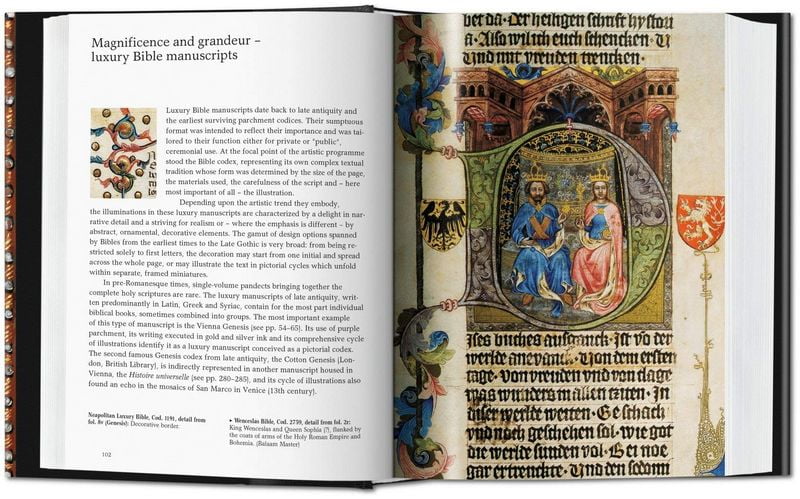 Magnificence and grandeur –
luxury Bible manuscripts
Luxury Bible manuscripts date back to late antiquity and
the earliest surviving parchment codices. Their sumptuous
format was intended to reflect their importance and was tai-
lored to their function either for private or "public",
ceremonial use. At the focal point of the artistic programme
stood the Bible codex, representing its own complex textual
tradition whose form was determined by the size of the page,
the materials used, the carefulness of the script and – here
most important of all – the illustration.
Depending upon the artistic trend they embody,
the illuminations in these luxury manuscripts are characterized by a delight in nar-
rative detail and a striving for realism or – where the emphasis is different – by
abstract, ornamental, decorative elements. The gamut of design options spanned
by Bibles from the earliest times to the Late Gothic is very broad: from being re-
stricted solely to first letters, the decoration may start from one initial and spread
across the whole page, or may illustrate the text in pictorial cycles which unfold
within separate, framed miniatures.
In pre-Romanesque times, single-volume pandects bringing together the
complete holy scriptures are rare. The luxury manuscripts of late antiquity, writ-
ten predominantly in Latin, Greek and Syriac, contain for the most part individual
biblical books, sometimes combined into groups. The most important example
of this type of manuscript is the Vienna Genesis (see pp. 54–65). Its use of purple
parchment, its writing executed in gold and silver ink and its comprehensive cycle
of illustrations identify it as a luxury manuscript conceived as a pictorial codex.
The second famous Genesis codex from late antiquity, the Cotton Genesis (Lon-
don, British Library), is indirectly represented in another manuscript housed in
Vienna, the Histoire universelle (see pp. 280–285), and its cycle of illustrations also
found an echo in the mosaics of San Marco in Venice (13th century).
Neapolitan Luxury Bible, Cod. 1191, detail from
fol. 8v (Genesis): Decorative border
♦ Wenceslas Bible, Cod. 2759, detail from fol. 2r:
King Wenceslas and Queen Sophia (?), flanked by
the coats of arms of the Holy Roman Empire and
Bohemia. (Balaam Master)
102
der heiligen schrift
Also wil ich euch schencken·
Vnd mit vreuden trencken·
D
ises buches ausganck· Ist vo der
werlde anevanck· Von dem ersten
tage· Von vreuden vnd von clage
was wunders in allen zeiten· In
diser werlde weiten· Ge schach
vnd noch geschehen sol· wie got
die werlde sunden vol· noe
gar ertrenckte· Vnd den sodomi